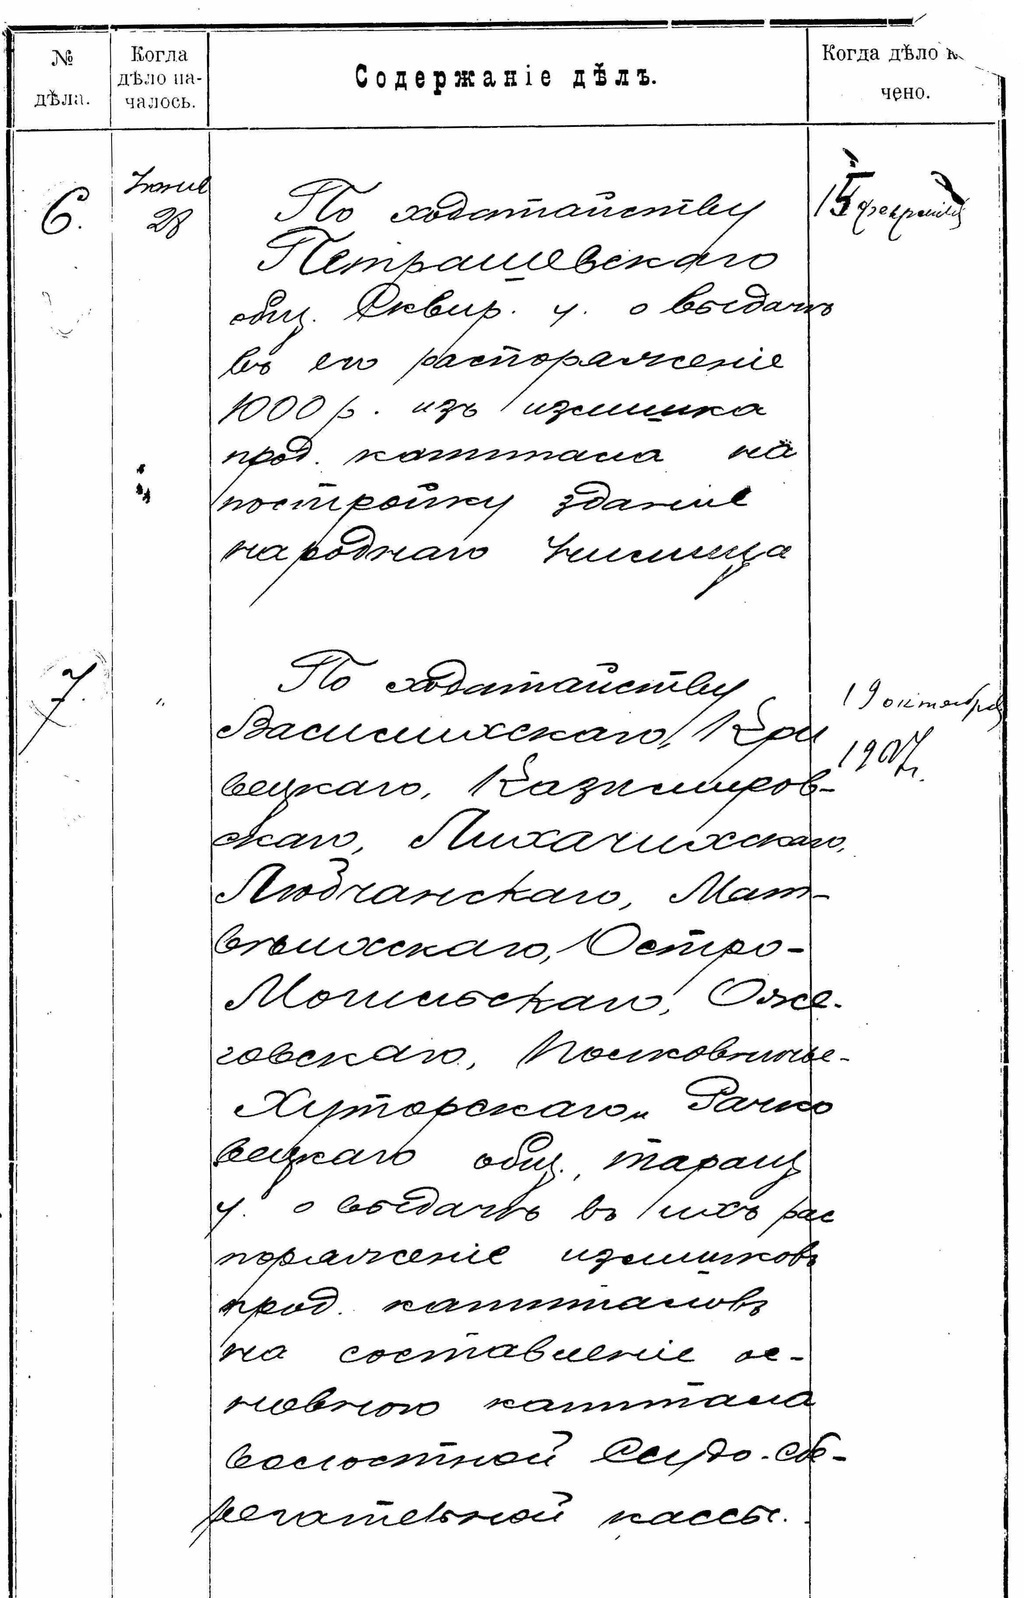 № дѣла.
Когда дѣло на-
чалось.
Содержаніе дѣлъ.
Когда дѣло
чено.
6.
Іюня
28
По ходатайству
Петрашевскаго
общ. Сквир. у. о выдачѣ
въ его распоряженіе
1000 р. изъ излишка
прод. капитала на
постройку зданіе
народнаго училища
15 февраля
7.
"
По ходатайству
Василихскаго, Кри
вецкаго, Казимиров-
скаго, Лихачихскаго,
Любчанскаго, Мат-
вѣихскаго, Остро-
Могильскаго, Оже-
говскаго, Полковничье-
Хуторскаго и Рачко
вецкаго общ. таращ
у. о выдачѣ въ ихъ рас
поряженіе излишковъ
прод. капиталовъ
на составленіе ос-
новного капитала
волостной Ссудо-сбе-
регательной кассы.
19 октября
1907 г.